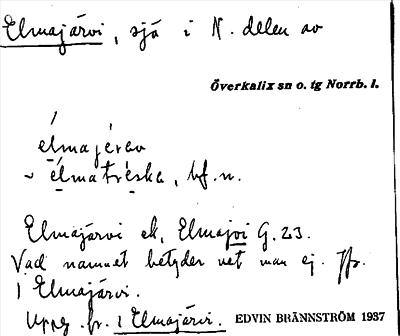 Elmajärvi, sjö i N. delen av
Överkalix sn o. tg Norrb. l.
élmajérav
~ élmatréska, bf. n.
Elmajärvi ek, Elmajvi G. 23.
Vad namnet betyder vet man ej. Jfr.
1 Elmajärvi.
Uppg. fr. 1 Elmajärvi. EDVIN BRÄNNSTRÖM 1937